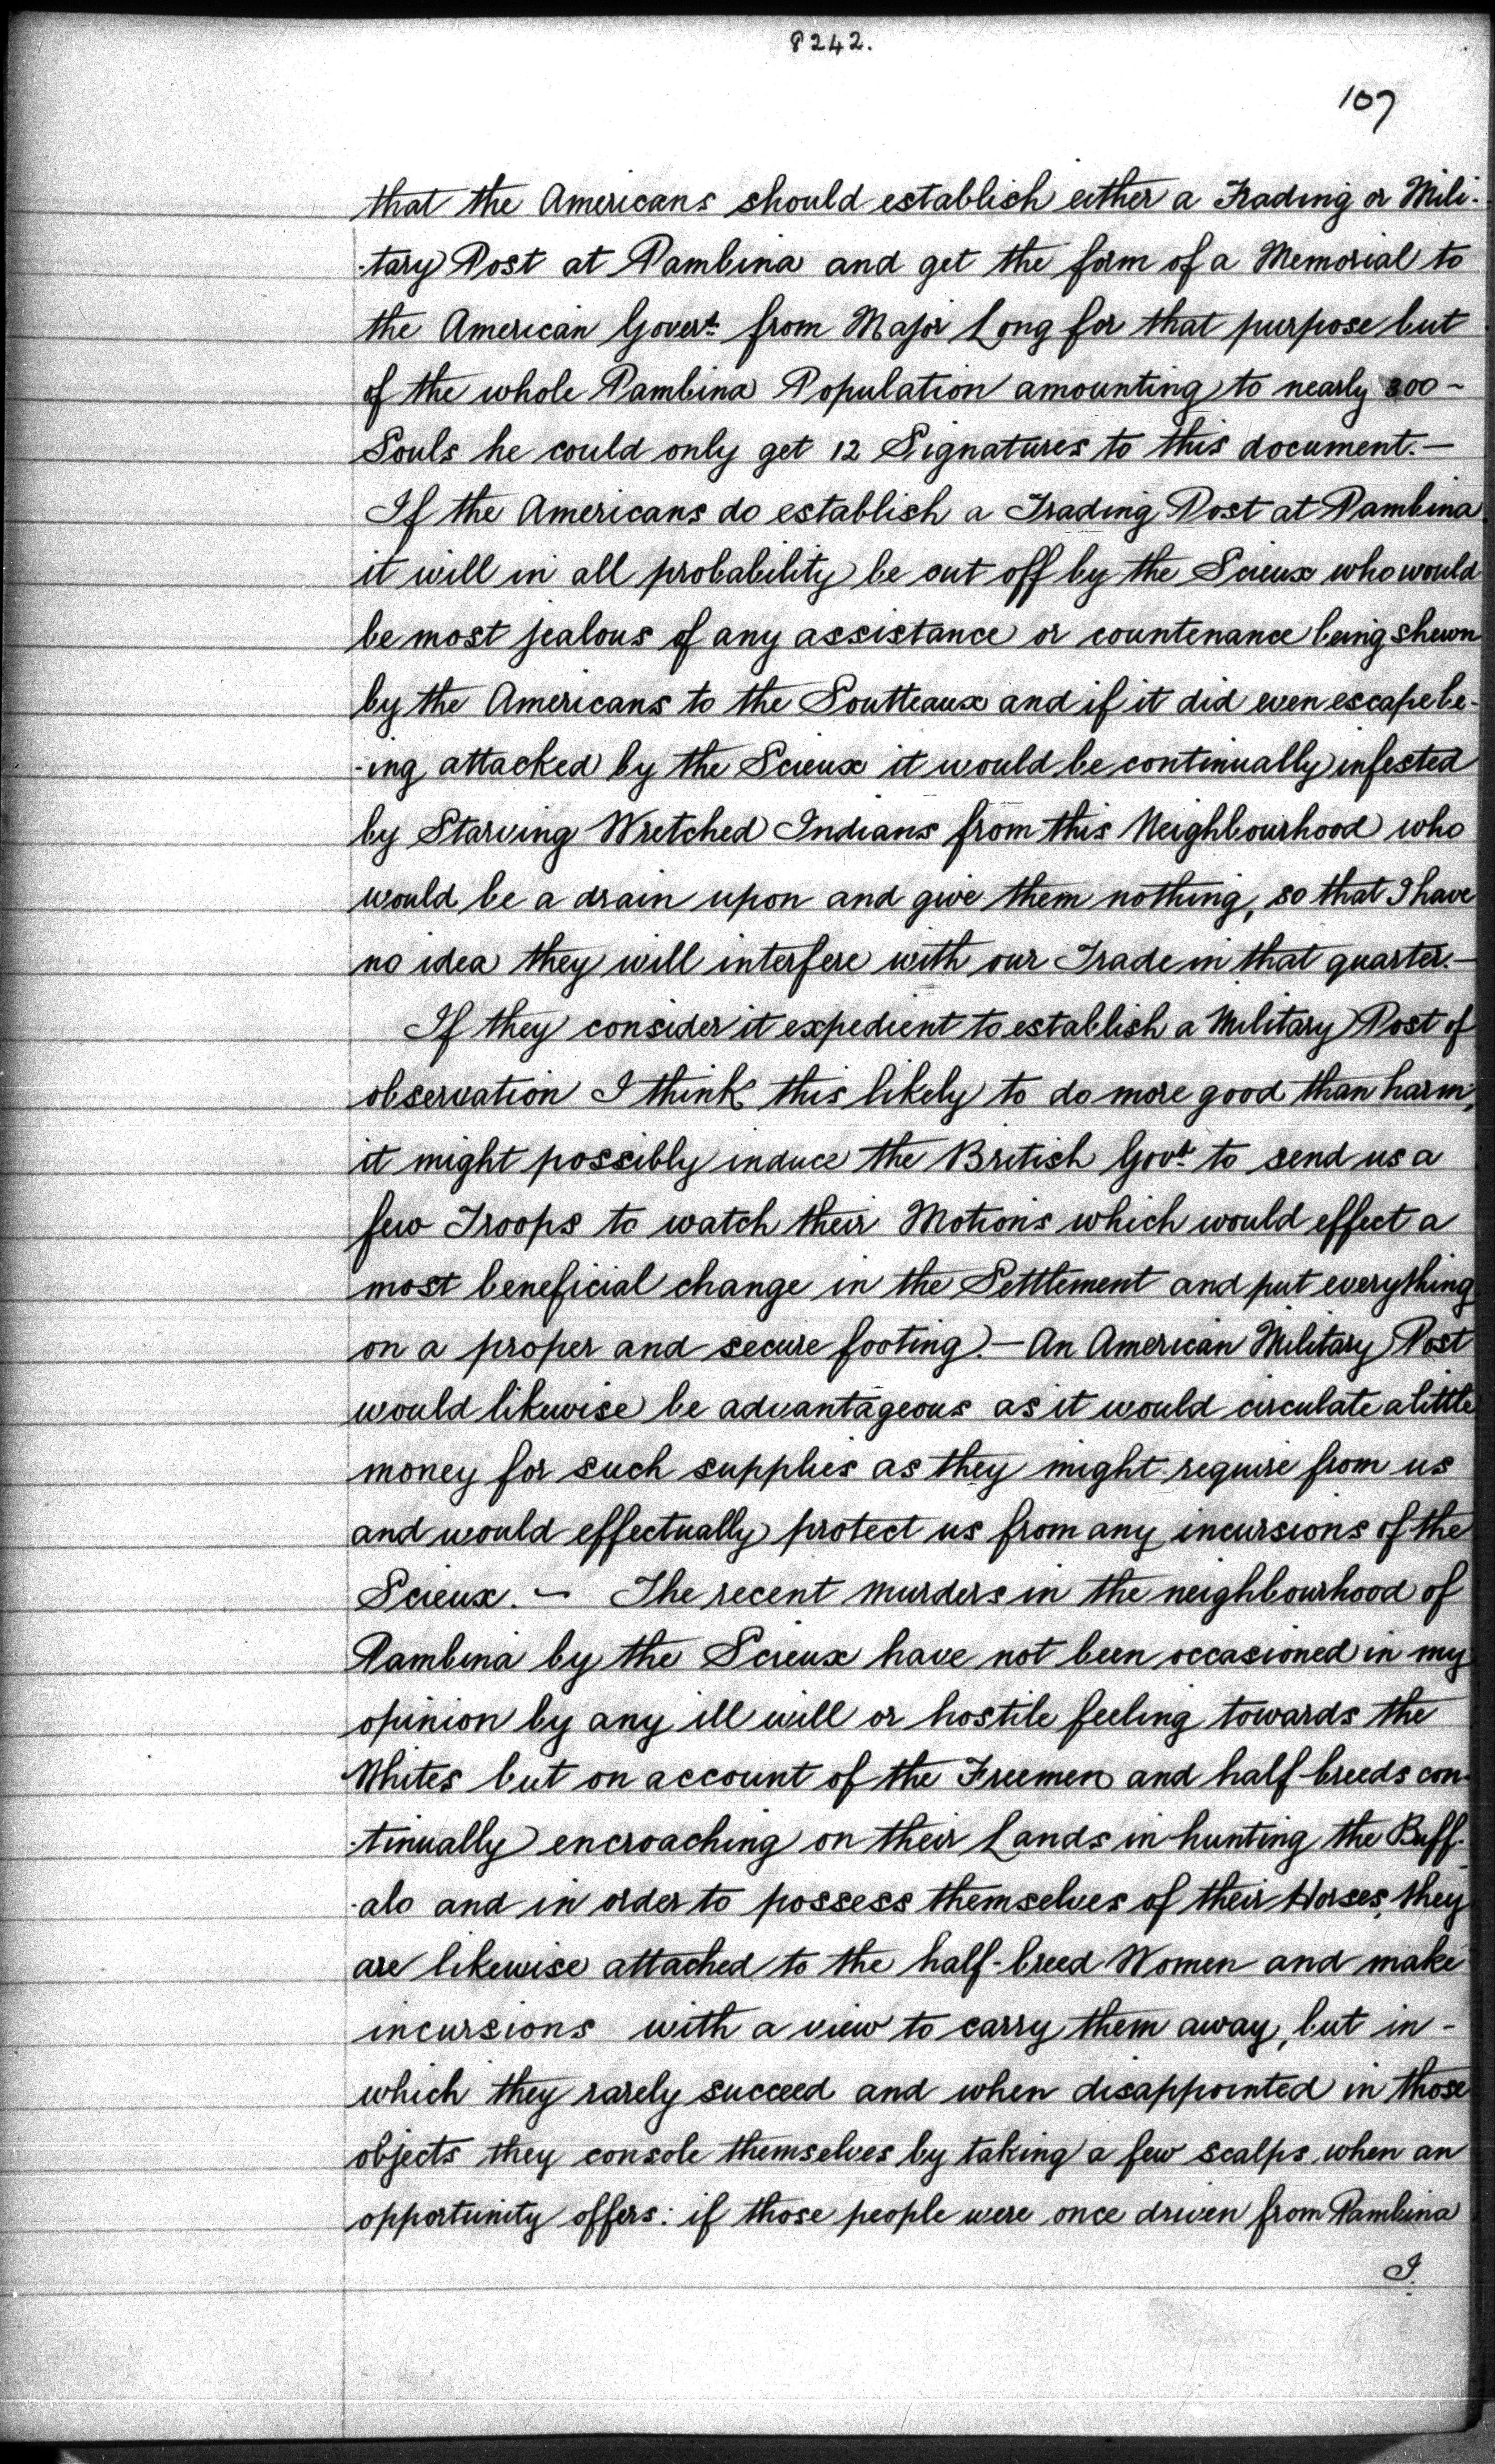 8242.
107
that the Americans should establish either a Trading or Mili-
-tary Post at Pambina and get the form of a Memorial to
the American Govert. from Major Long for that purpose but
of the whole Pambina Population amounting to nearly 300 -
Souls he could only get 12 Signatures to this document. -
If the Americans do establish a Trading Post at Pambina
it will in all probability be cut off by the Scieux who would
be most jealous of any assistance or countenance being shewn
by the Americans to the Soutteaux and if it did even escape be-
-ing attacked by the Scieux it would be continually infested
by Starving Wretched Indians from this Neighbourhood who
would be a drain upon and give them nothing, so that I have
no idea they will interfere with our Trade in that quarter. -
If they consider it expedient to establish a Military Post of
observation I think this likely to do more good than harm,
it might possibly induce the British Govt. to send us a
few Troops to watch their Motions which would effect a
most beneficial change in the Settlement and put everything
on a proper and secure footing. - An American Military Post
would likewise be advantageous as it would circulate a little
money for such supplies as they might require from us
and would effectually protect us from any incursions of the
Scieux. - The recent murders in the neighbourhood of
Pambina by the Scieux have not been occasioned in my
opinion by any ill will or hostile feeling towards the
Whites but on account of the Freemen and half-breeds con-
-tinually encroaching on their Lands in hunting the Buff-
-alo and in order to possess themselves of their Horses, they
are likewise attached to the half-breed Women and make
incursions with a view to carry them away, but in -
which they rarely succeed and when disappointed in those
objects they console themselves by taking a few scalps when an
opportunity offers: if those people were once driven from Pambina
I